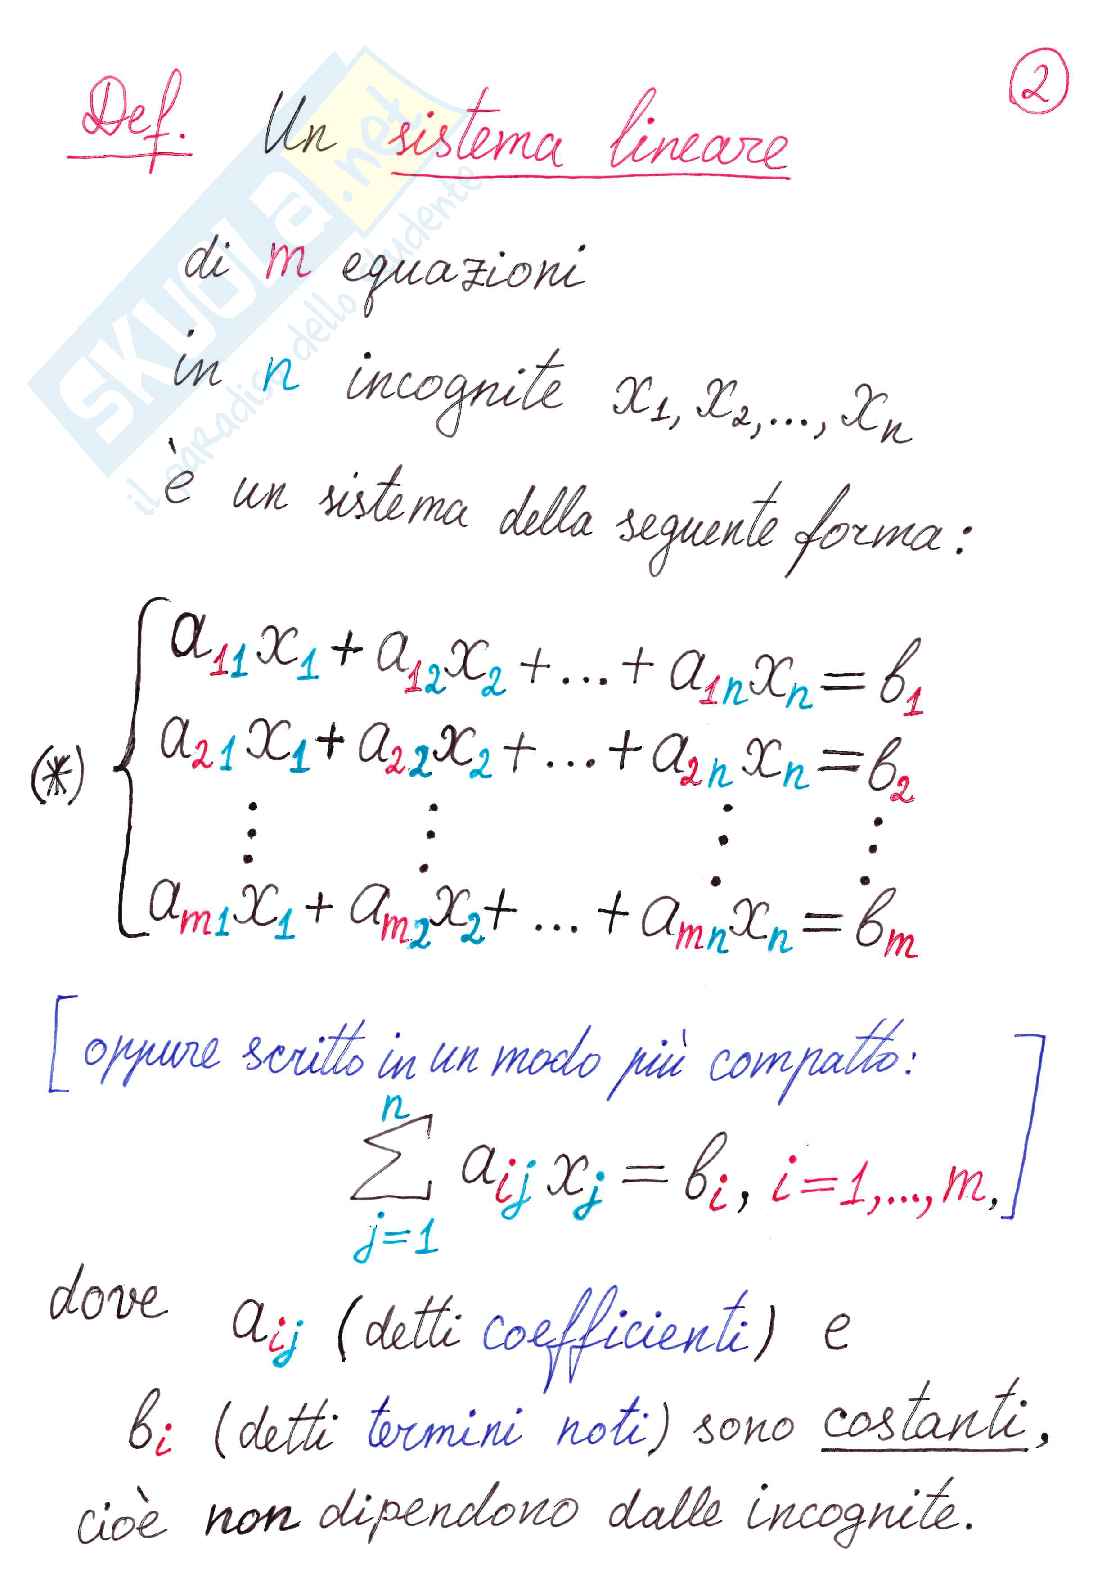 2
Def. Un sistema lineare
di m equazioni
in n incognite x₁, x₂, ..., xₙ
è un sistema della seguente forma:
a₁₁x₁ + a₁₂x₂ + ... + a₁ₙxₙ = b₁
(*) a₂₁x₁ + a₂₂x₂ + ... + a₂ₙxₙ = b₂
⋮ ⋮ ⋮ ⋮
aₘ₁x₁ + aₘ₂x₂ + ... + aₘₙxₙ = bₘ
[oppure scritto in un modo più compatto:
n
∑ aᵢⱼxⱼ = bᵢ, i=1,...,m,]
j=1
dove aᵢⱼ (detti coefficienti) e
bᵢ (detti termini noti) sono costanti,
cioè non dipendono dalle incognite.
SKUOLA.net
il paradiso dello studente